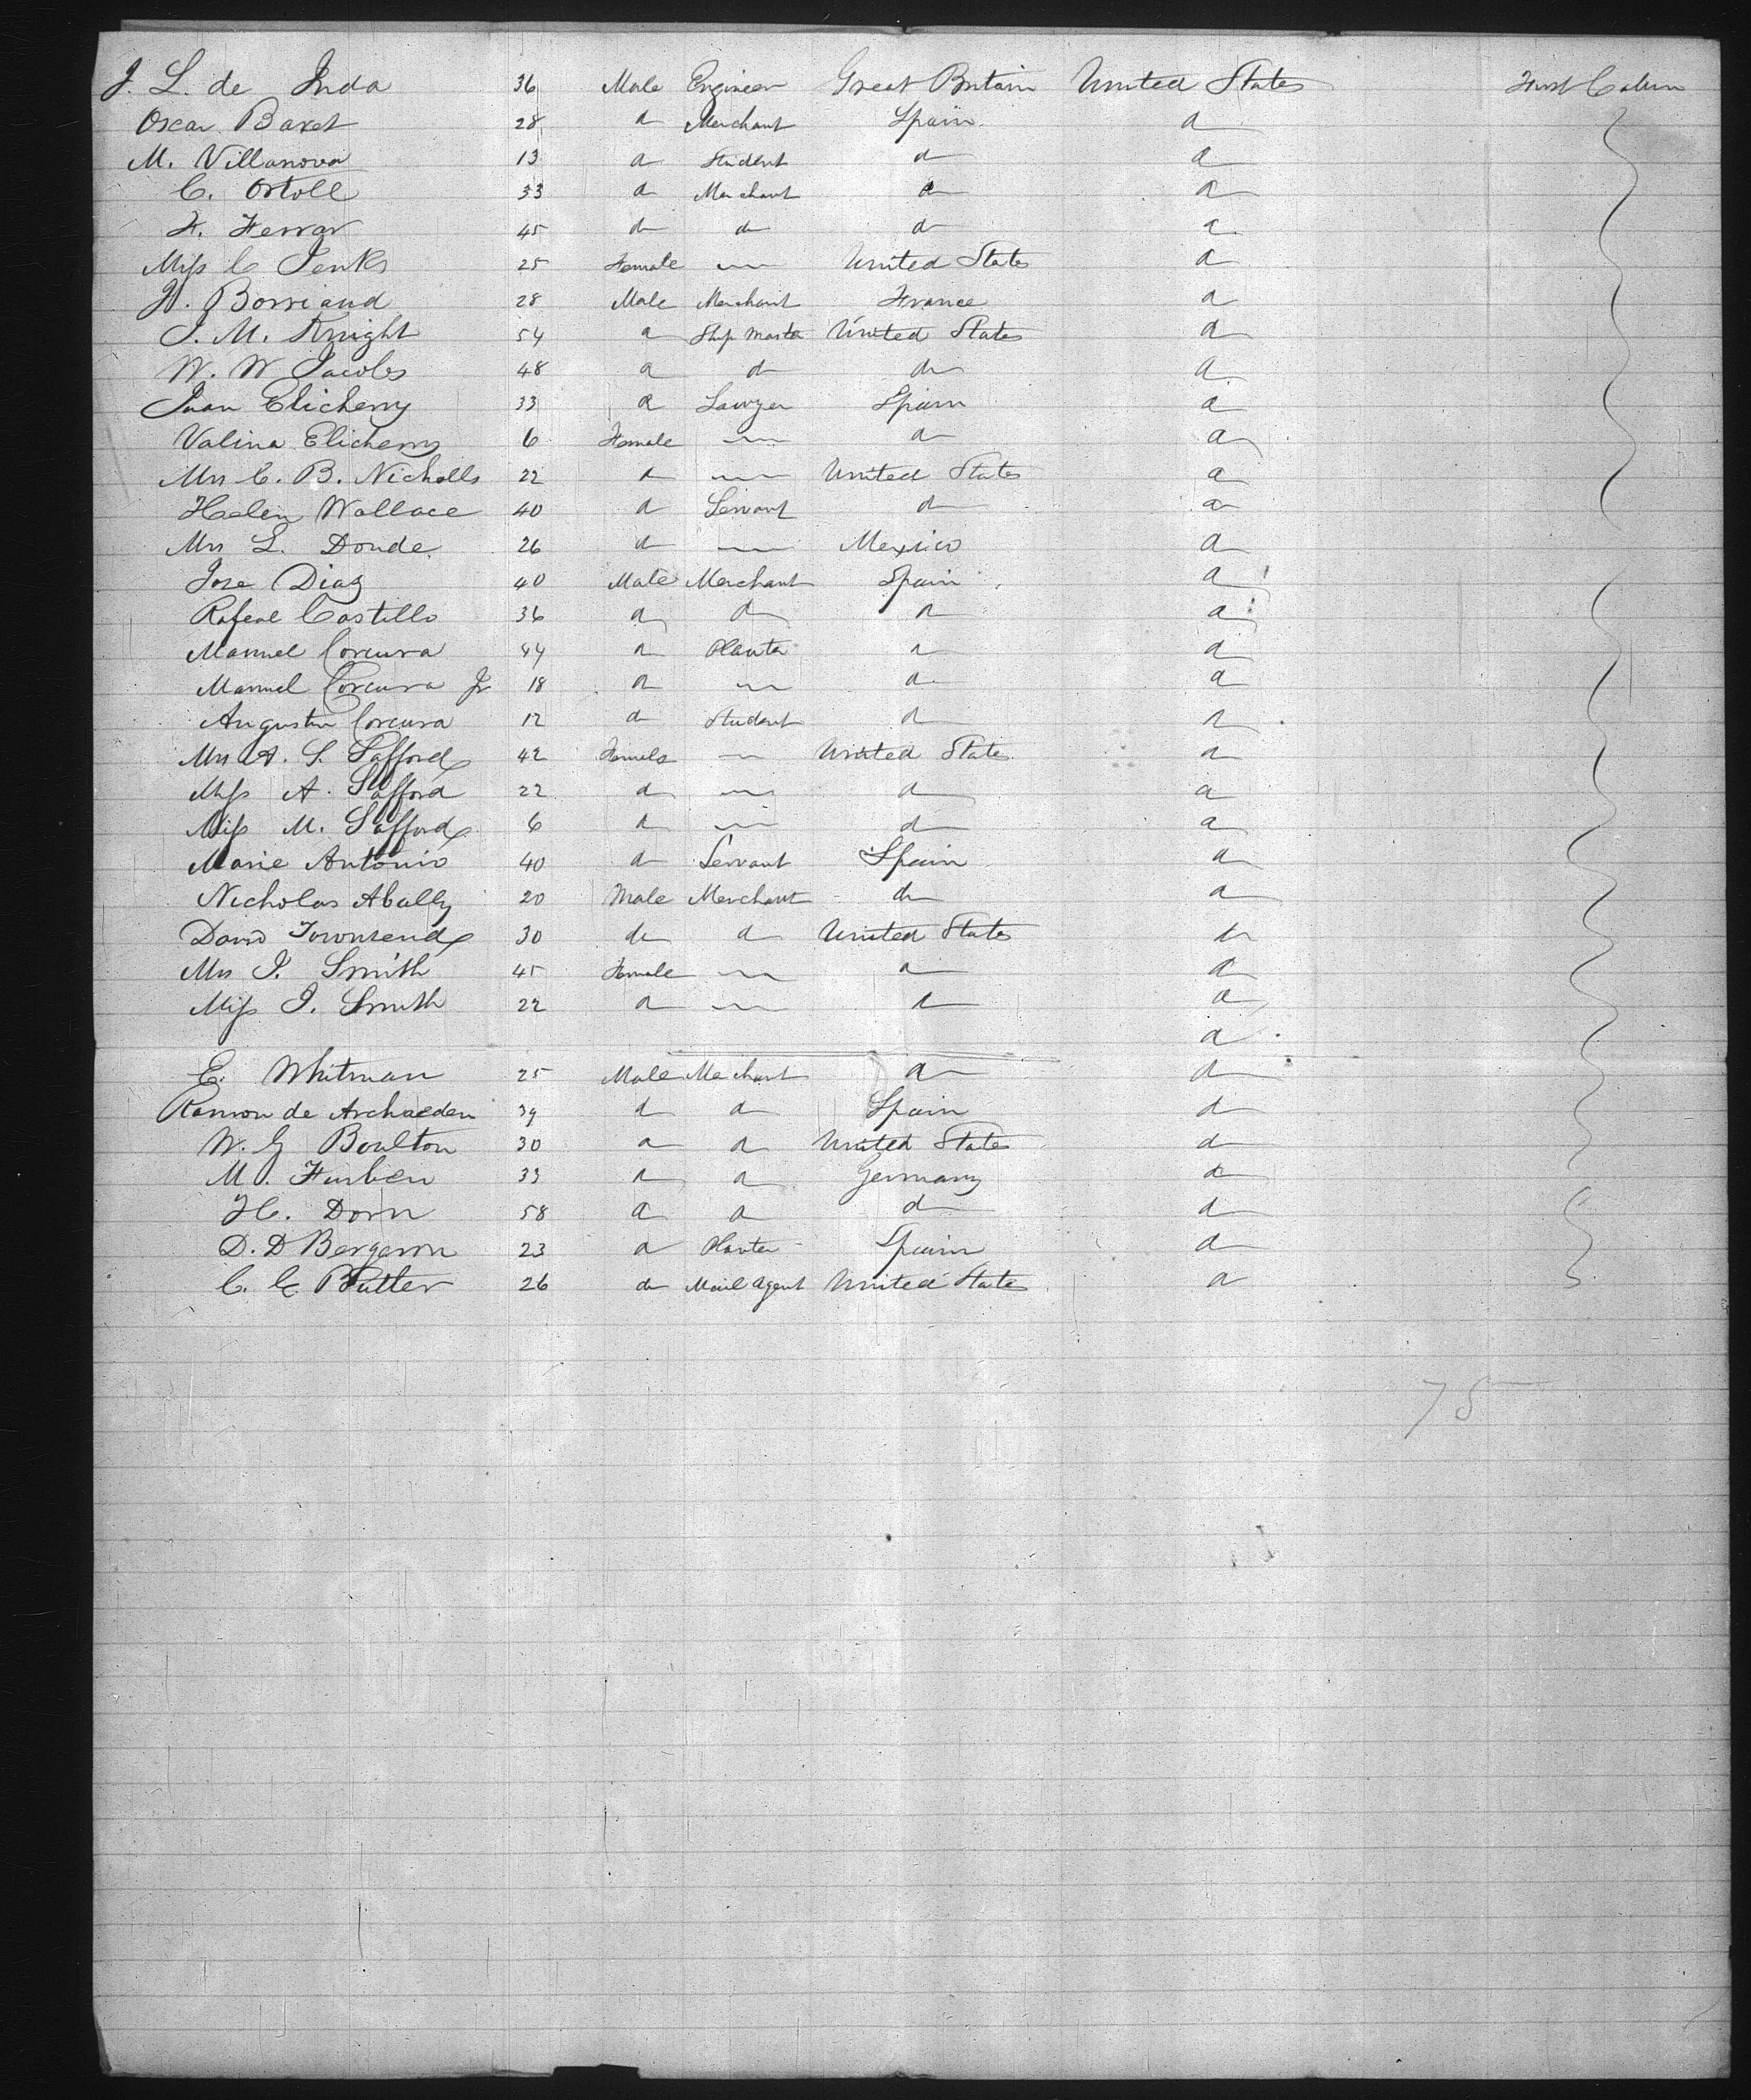 J. L. de Inda 36 Male Engineer Great Britain United States First Cabin
Oscar Baxet 28 do Merchant Spain do
M. Villanova 13 do Student do do
C. Ortoll 33 do Merchant do do
F. Ferrar 45 do do do do
Miss C Jenks 25 Female — United States do
H. Borriand 28 Male Merchant France do
J. M. Knight 54 do Ship Master United States do
W. W Jacobs 48 do do do do
Juan Elicherry 33 do Lawyer Spain do
Valina Elicherry 6 Female — do do
Mrs C. B. Nicholls 22 do — United States do
Helen Wallace 40 do Servant do do
Mrs L. Donde 26 do — Mexico do
Jose Diaz 40 Male Merchant Spain do
Rafeal Castillo 36 do do do do
Manuel Corcura 44 do Planter do do
Manuel Corcura Jr 18 do — do do
Augustin Corcura 12 do Student do do
Mrs A. S. Safford 42 Female — United States do
Miss A. Safford 22 do — do do
Miss M. Safford 6 do — do do
Marie Antonio 40 do Servant Spain do
Nicholas Abally 20 Male Merchant do do
David Townsend 30 do do United States do
Mrs J. Smith 45 Female — do do
Miss J. Smith 22 do — do do
do
E. Whitman 25 Male Merchant do do
Ramon de Archaeden 39 do do Spain do
W. G Boulton 30 do do United States do
M. Furben 33 do do Germany do
H. Dorn 58 do do do do
D. D Bergeron 23 do Planter Spain do
C. C. Butter 26 do Mail Agent United States do
75